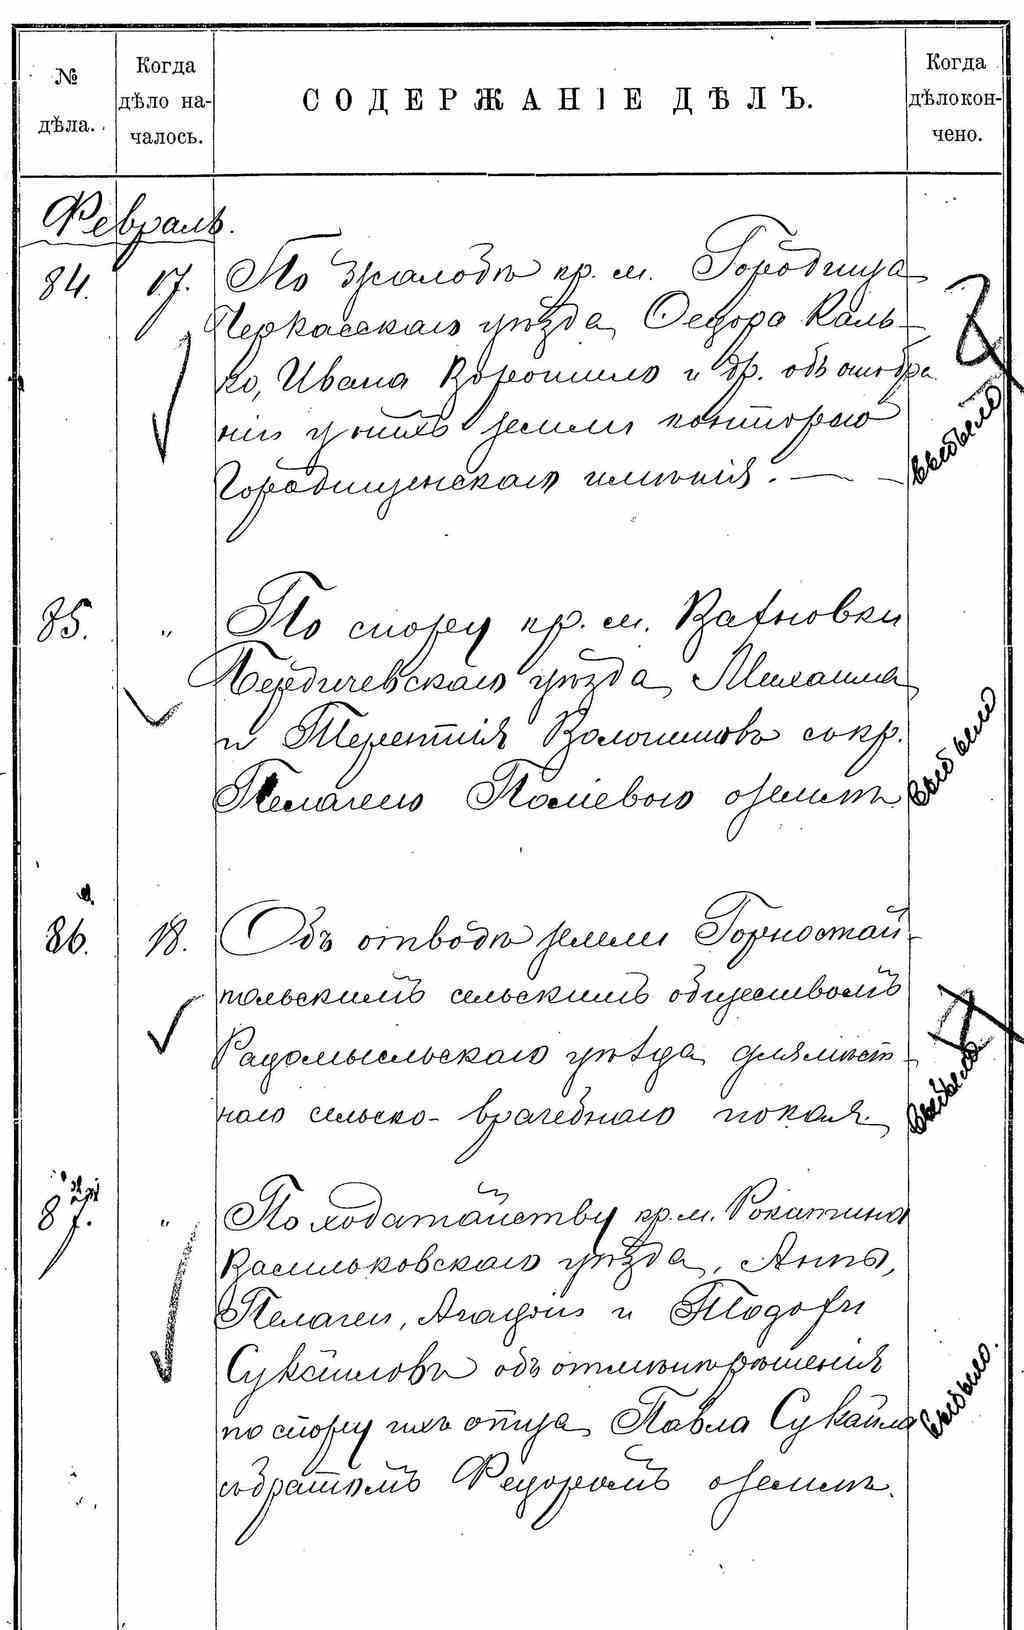 № дѣла.
Когда дѣло на-
чалось.
СОДЕРЖАНІЕ ДѢЛЪ.
Когда
дѣло кон-
чено.
Февраль.
84. 17. По жалобѣ кр. м. Городища
Черкасскаго уѣзда, Ѳедора Каль-
ко, Ивана Ворошило и др. объ отобра
ніи у нихъ земли конторою
Городищенскаго имѣнія. —
выбыло
85. " По спору кр. м. Вахновки
Бердичевскаго уѣзда, Михаила
и Терентія Волошиновъ съ кр.
Пелагеею Полiевою о землѣ.
выбыло
86. 18. Объ отводѣ земли Горностай-
польскимъ сельскимъ обществомъ
Радомысльскаго уѣзда для мѣст-
наго сельско-врачебнаго покоя.
выбыло
87. " По ходатайству кр. м. Рокитна
Васильковскаго уѣзда, Анны,
Пелагеи, и Тодоры
Сукайловъ объ отмѣнѣ рѣшенія
по спору ихъ отца, Павла Сукайла
съ братомъ Федоромъ о землѣ.
выбыло.